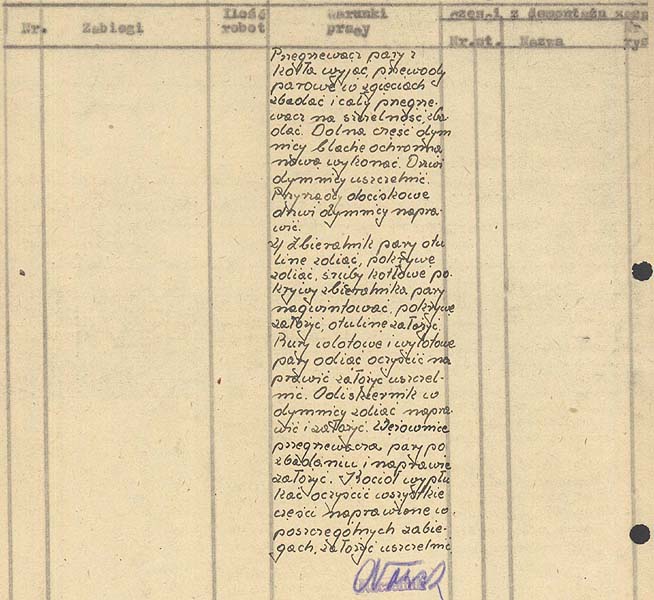 Nr. Zabiegi Ilość robot Warunki pracy części z demontażu
Nr.st. Nazwa Nr rys
Przegrzewacz pary z
kotła wyjąć, przewody
parowe w zgięciach
zbadać i cały przegrze-
wacz na szczelność zba
dać. Dolna część dym
nicy blachę ochronną
nową wykonać. Drzwi
dymnicy uszczelnić.
Przyrządy dociskowe
drzwi dymnicy napra-
wić.
2) Zbieralnik pary otu
linę zdiąć, pokrywę
zdiąć, śruby kotłowe po-
krywy zbieralnika pary
nagwintować, pokrywę
założyć, otulinę założyć.
Rury wlotowe i wylotowe
pary odiąć oczyścić na
prawić założyć uszczel-
nić. Odiskiernik w
dymnicy zdiąć napra
wić i założyć. Węzownice
przegrzewacza pary po
zbadaniu i naprawie
założyć. Kocioł wypłu
kać oczyścić wszystkie
części naprawione w
poszczególnych zabie-
gach, założyć uszczelnić